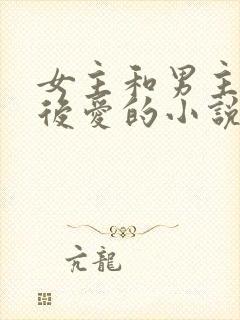 女主和男主
後愛的小說
亢龍